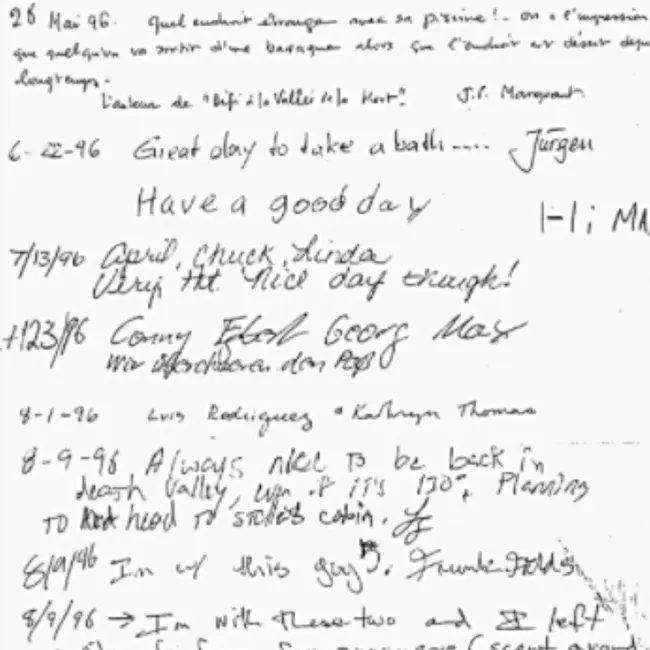 28 Mai 96. Quel endroit étrange avec sa piscine! - on a l'impression
que quelqu'un va sortir d'une baraque alors que l'endroit est désert depuis
longtemps.
L'auteur de "Défi à la Vallée de la Mort" J.P. Marquant
6-22-96 Great day to take a bath..... Jürgen
Have a good day
Hi; MA
7/13/96 April, Chuck, Linda
Very Hot. Nice day though!
123/96 Conny Georg Max
Wir den
8-1-96 Luis Rodriguez • Kathryn Thomas
8-9-96 Always nice to be back in
death Valley, even if it's 130°. Planning
to head to cabin.
8/9/96 I'm w/ this guy. Frank
8/9/96 → I'm with these two and I left